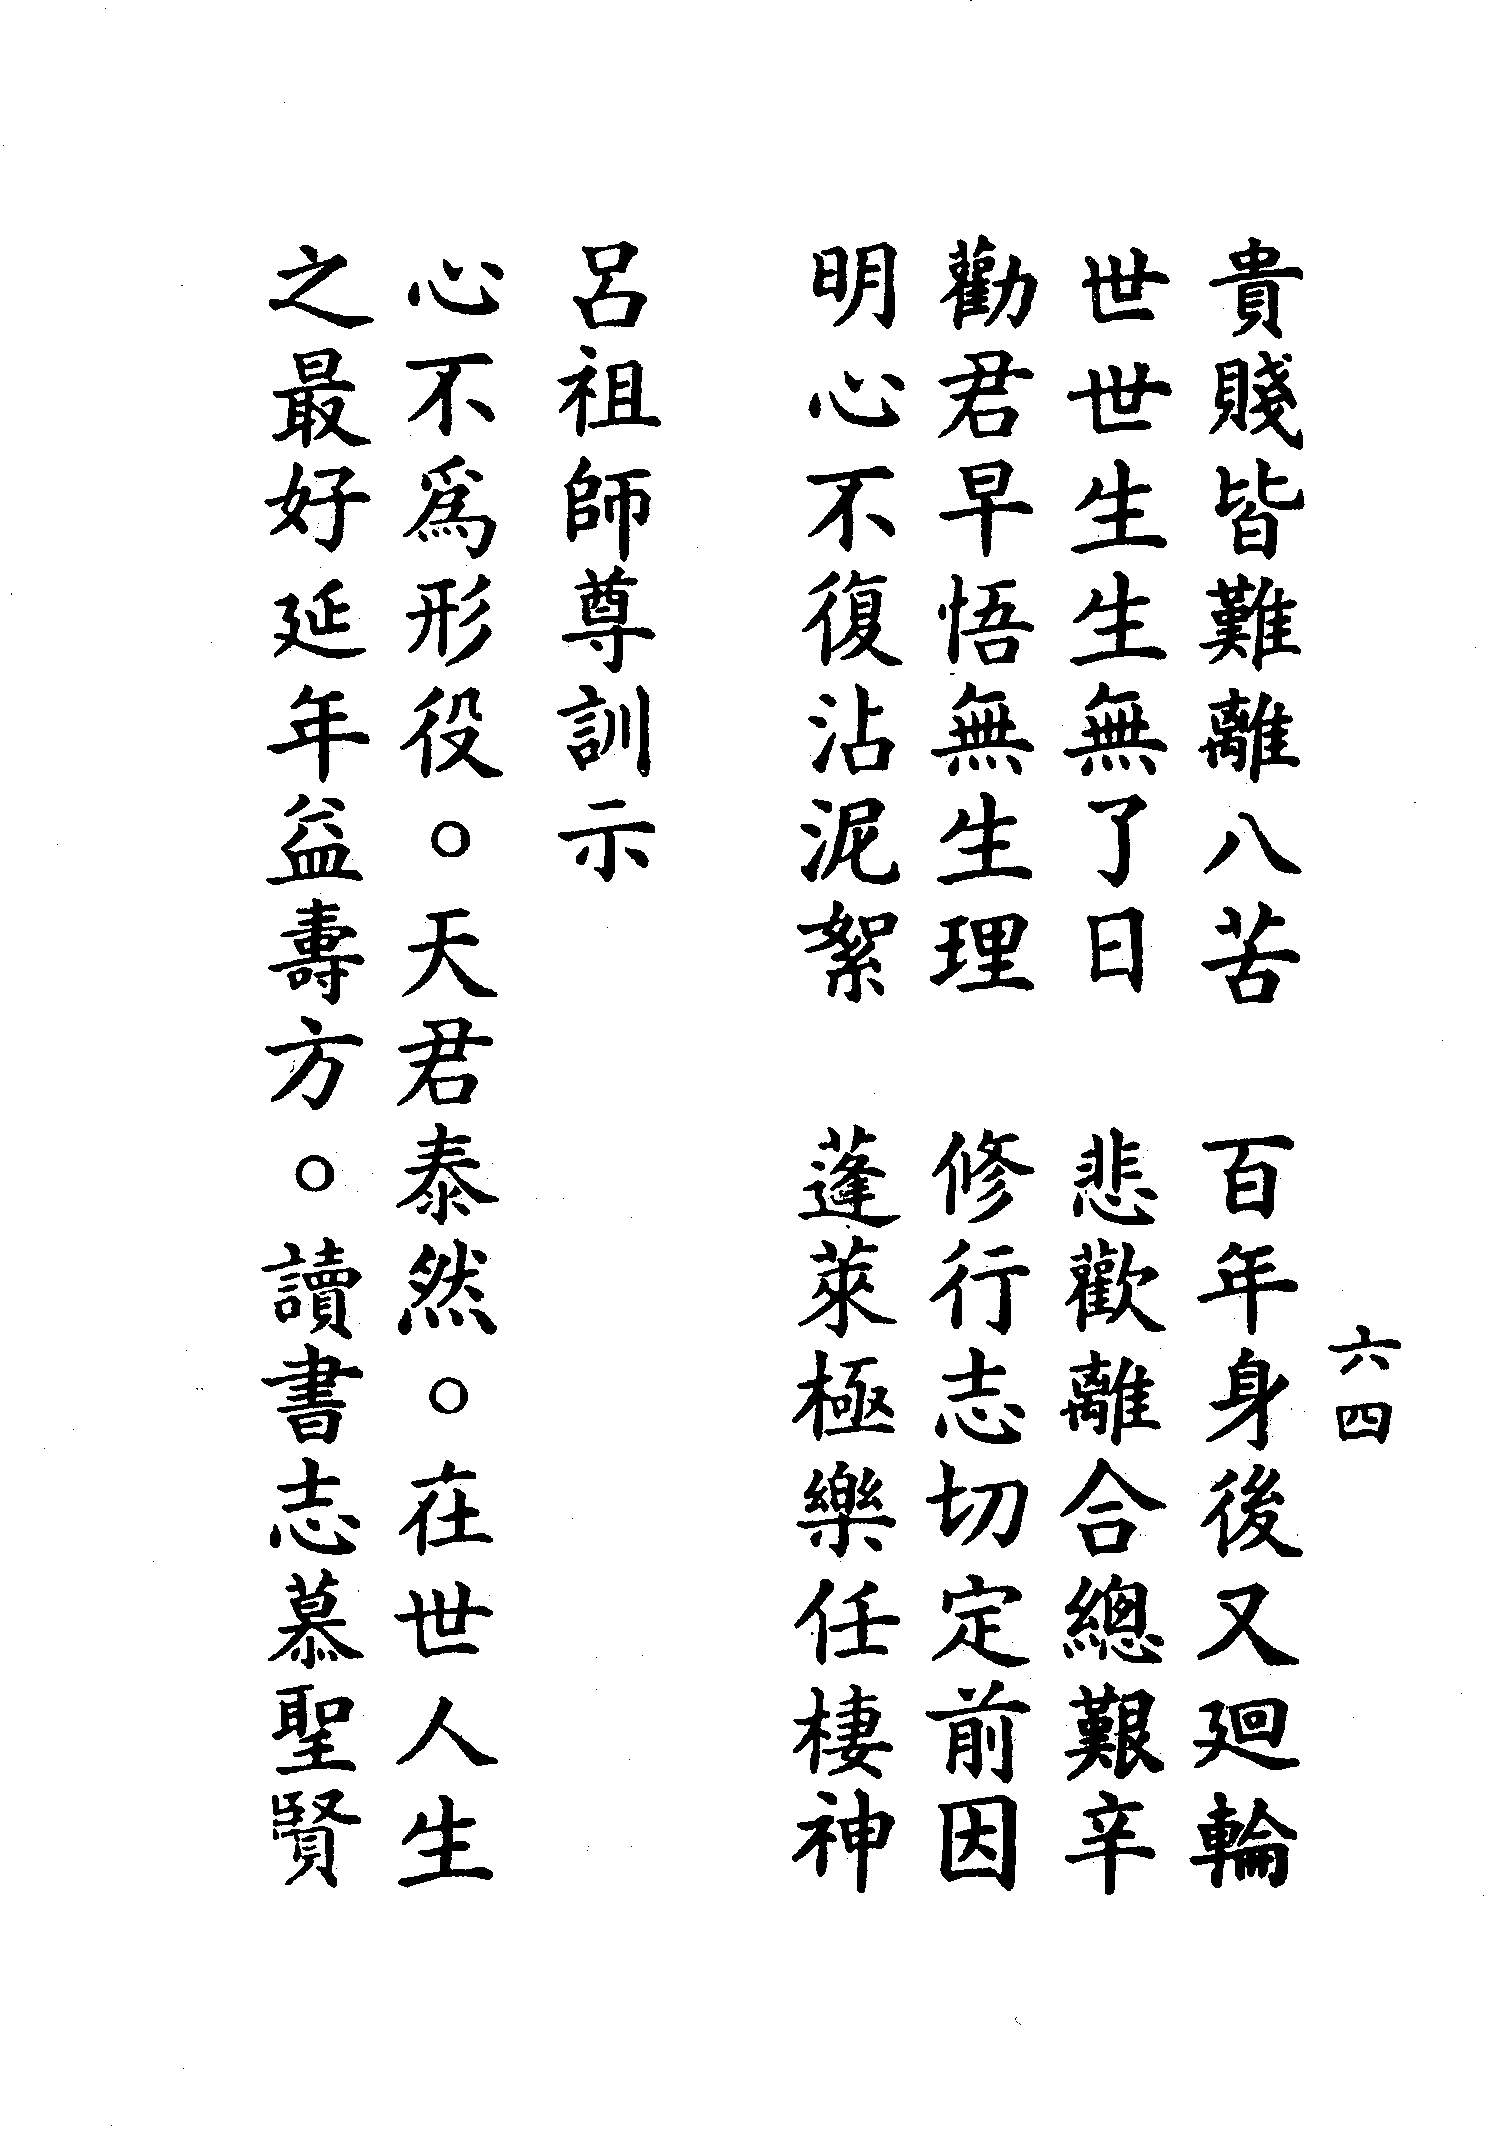 六四
貴賤皆難離八苦　百年身後又廻輪
世世生生無了日　悲歡離合總艱辛
勸君早悟無生理　修行志切定前因
明心不復沾泥絮　蓬萊極樂任棲神
呂祖師尊訓示
心不為形役。天君泰然。在世人生
之最好延年益壽方。讀書志慕聖賢